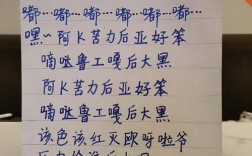 嘟…嘟…嘟…嘟…嘟…嘟…
嘿~阿K苦力后亚好笨
嘀哒鲁工嘎后大黑
阿K苦力后亚好笨
嘀哒鲁工嘎后大黑
该色该红灭欧呀啦爷